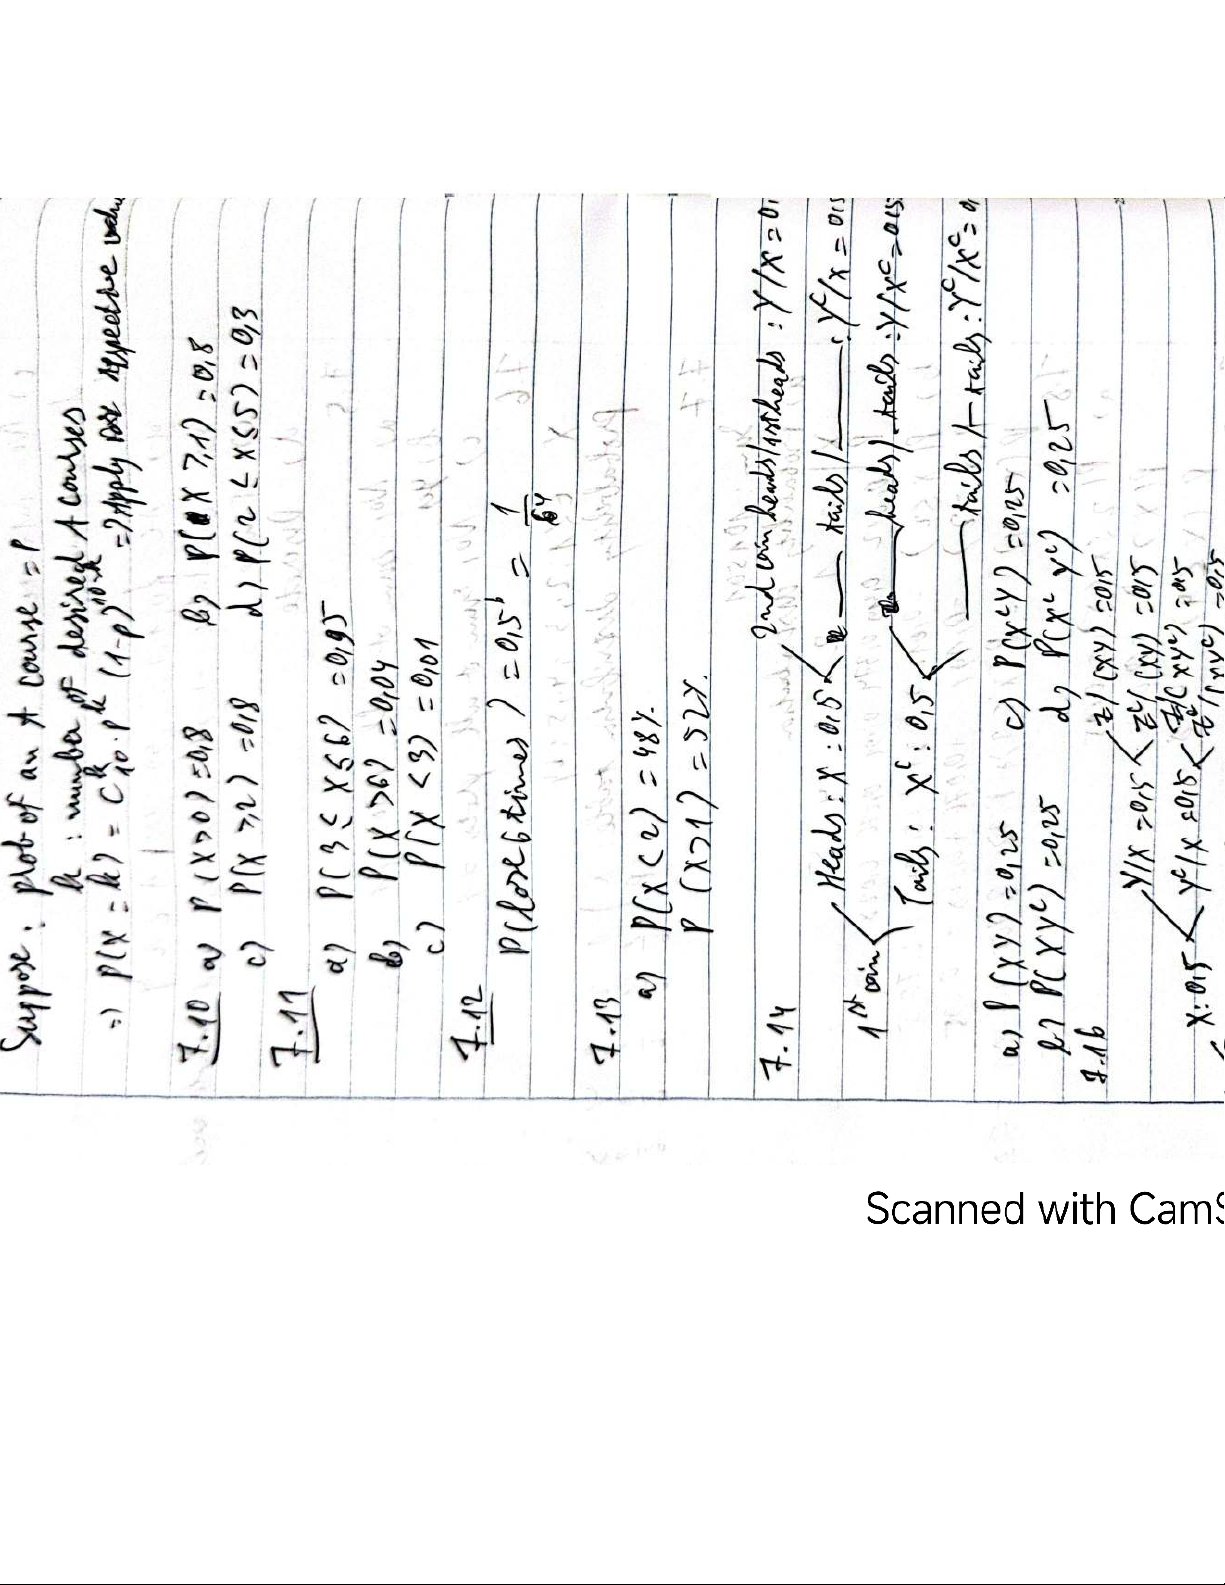 Suppose: prob of an A course = P
k: number of desired A courses
=) P(X = k) = C^k_10 . p^k (1-p)^10-k => Apply respective
7.10 a) P(X>0) = 0,8 b) P(X ≥ 1) = 0,8
c) P(X ≥ 2) = 0,8 d) P(2 ≤ X ≤ 5) = 0,3
7.11
a) P(3 ≤ X ≤ 6) = 0,95
b) P(X > 6) = 0,04
c) P(X < 3) = 0,01
7.12
P(lose 6 times) = 0,5^6 = 1/64
7.13
a) P(X < 2) = 48%
P(X > 1) = 52%
7.14
2nd coin heads/1st heads : Y/X = 0,
Heads : X : 0,5 — tails / — : Y^c/X = 0,5
1st coin — heads / tails : Y/X^c = 0,5
Tails : X^c : 0,5
— tails / — tails : Y^c/X^c = 0,
a) P(XY) = 0,25 c) P(X^cY) = 0,25
b) P(XY^c) = 0,25 d) P(X^c Y^c) = 0,25
7.16
Z/(XY) = 0,5
Y/X = 0,5 Z^c/(XY) = 0,5
Z/(XY^c) = 0,5
X: 0,5 Y^c/X = 0,5 Z^c/(XY^c) = 0,5
Scanned with CamS